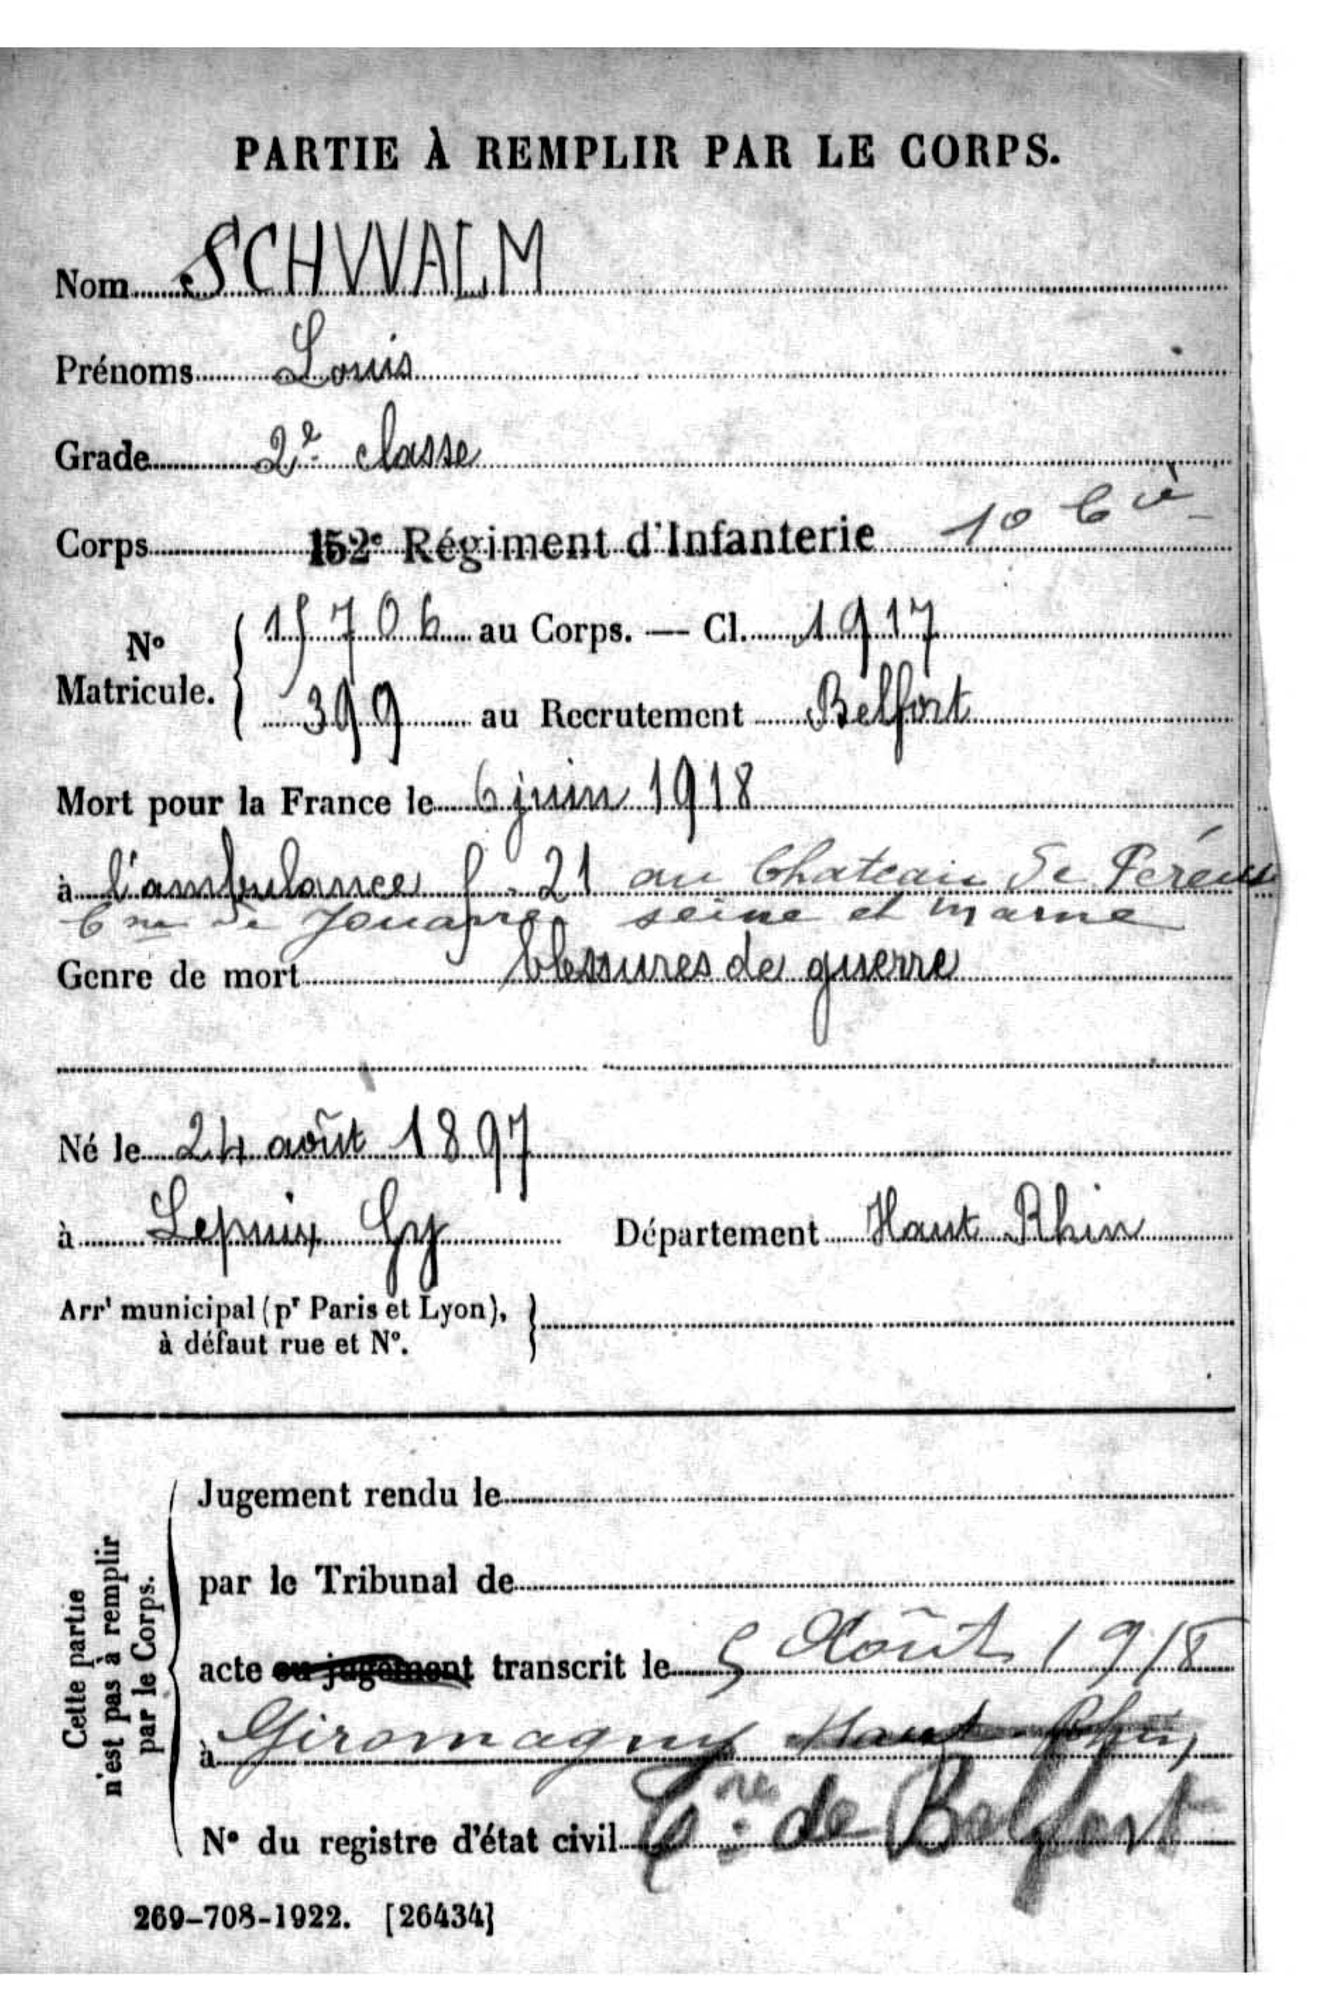 PARTIE À REMPLIR PAR LE CORPS.
Nom SCHWALM
Prénoms Louis
Grade 2e classe
Corps 152e Régiment d'Infanterie 10 Cie
N° Matricule. { 15706 au Corps. — Cl. 1917
399 au Recrutement Belfort
Mort pour la France le 6 juin 1918
à l'ambulance 21 au Chateau de Pereuse
Cne de Jouarre seine et marne
Genre de mort blessures de guerre
Né le 24 août 1897
à Lepuix Gy Département Haut Rhin
Arrt municipal (pr Paris et Lyon),
à défaut rue et N°.
Cette partie
n'est pas à remplir
par le Corps.
Jugement rendu le
par le Tribunal de
acte ou jugement transcrit le 5 Août 1918
à Giromagny Haut Rhin
N° du registre d'état civil Tre de Belfort
269-708-1922. [26434]